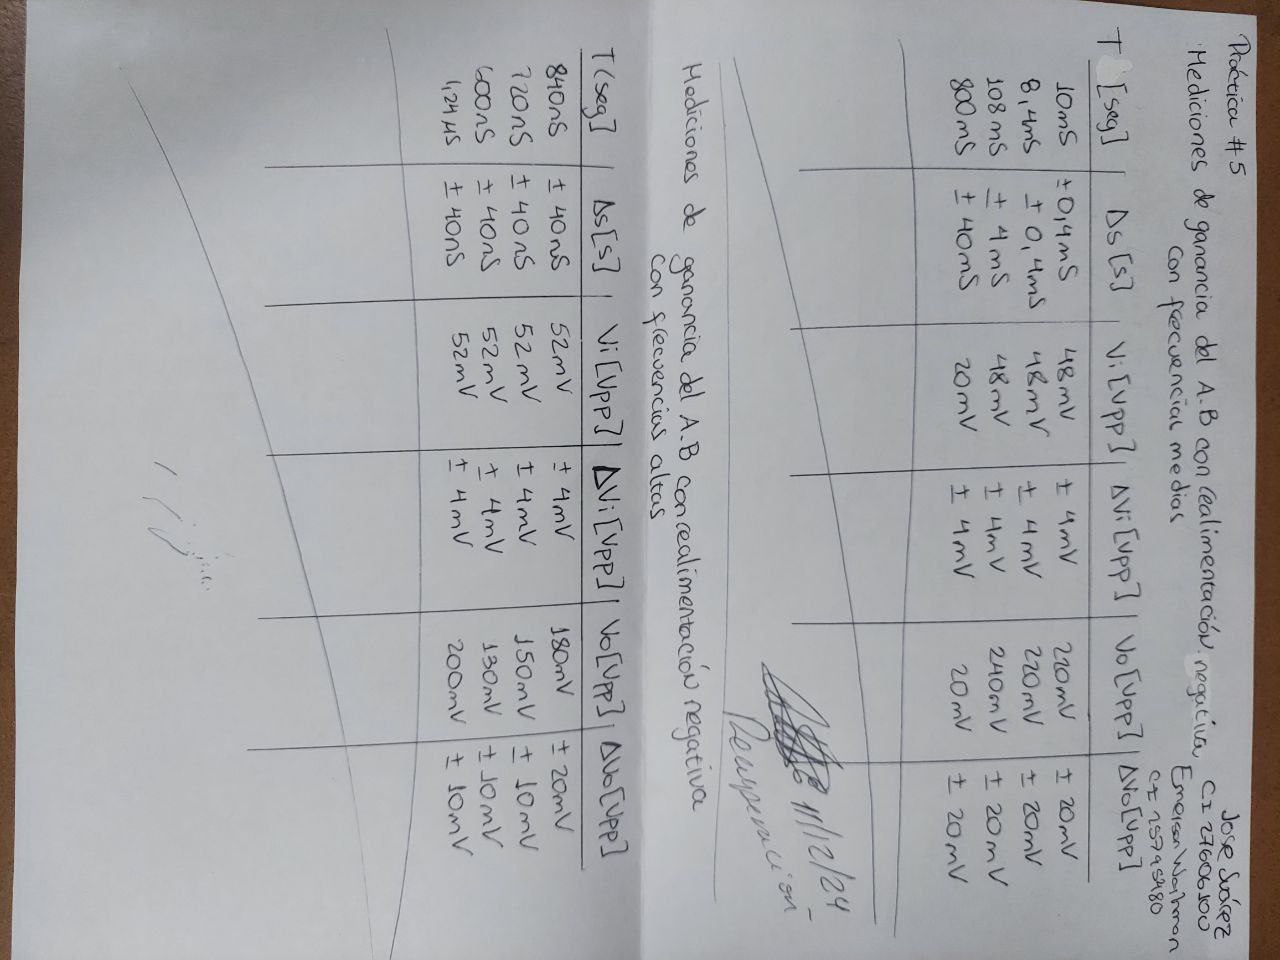 Práctica #5
Jose Suárez
CI 27606100
Mediciones de ganancia del A.B con realimentación negativa
con frecuencias medias
Emerson
CI 25795480
T [seg] Δs [s] Vi [Vpp] ΔVi [Vpp] Vo [Vpp] ΔVo [Vpp]
10mS ± 0,4mS 48mV ± 4mV 220mV ± 20mV
8,4mS ± 0,4mS 48mV ± 4mV 220mV ± 20mV
108mS ± 4mS 48mV ± 4mV 240mV ± 20mV
800mS ± 40mS 20mV ± 4mV 20mV ± 20mV
11/12/24
Recuperación
Mediciones de ganancia del A.B con realimentación negativa
con frecuencias altas
T(seg] Δs [s] Vi [Vpp] ΔVi [Vpp] Vo [Vpp] ΔVo [Vpp]
840nS ± 40nS 52mV ± 4mV 180mV ± 20mV
720nS ± 40nS 52mV ± 4mV 150mV ± 10mV
600nS ± 40nS 52mV ± 4mV 130mV ± 10mV
1,24 µS ± 40nS 52mV ± 4mV 200mV ± 10mV